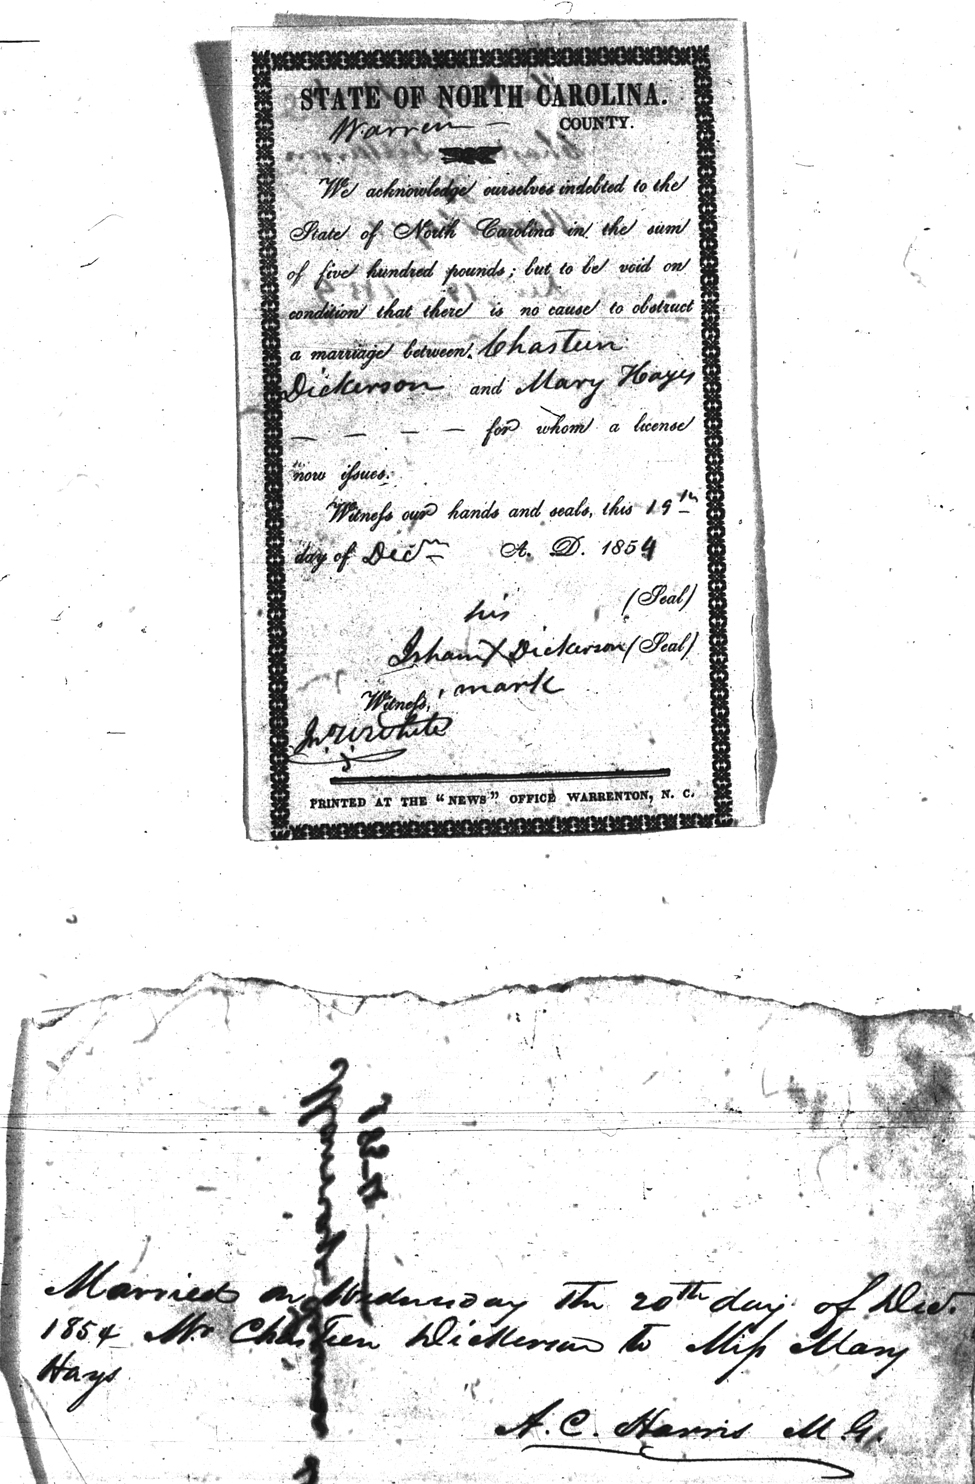 STATE OF NORTH CAROLINA.
Warren — COUNTY.
We acknowledge ourselves indebted to the
State of North Carolina in the sum
of five hundred pounds; but to be void on
condition that there is no cause to obstruct
a marriage between Chasteen
Dickerson and Mary Hayes
— — — — for whom a license
now issues.
Witness our hands and seals, this 19th
day of Decm A. D. 1854
his (Seal)
Isham X Dickerson (Seal)
mark
Witness,
Jno W White
PRINTED AT THE "NEWS" OFFICE WARRENTON, N. C.
1854
Married on Wednesday the 20th day of Dec.
1854 Mr Chasteen Dickerson to Miss Mary
Hays
A. C. Harris M. G.